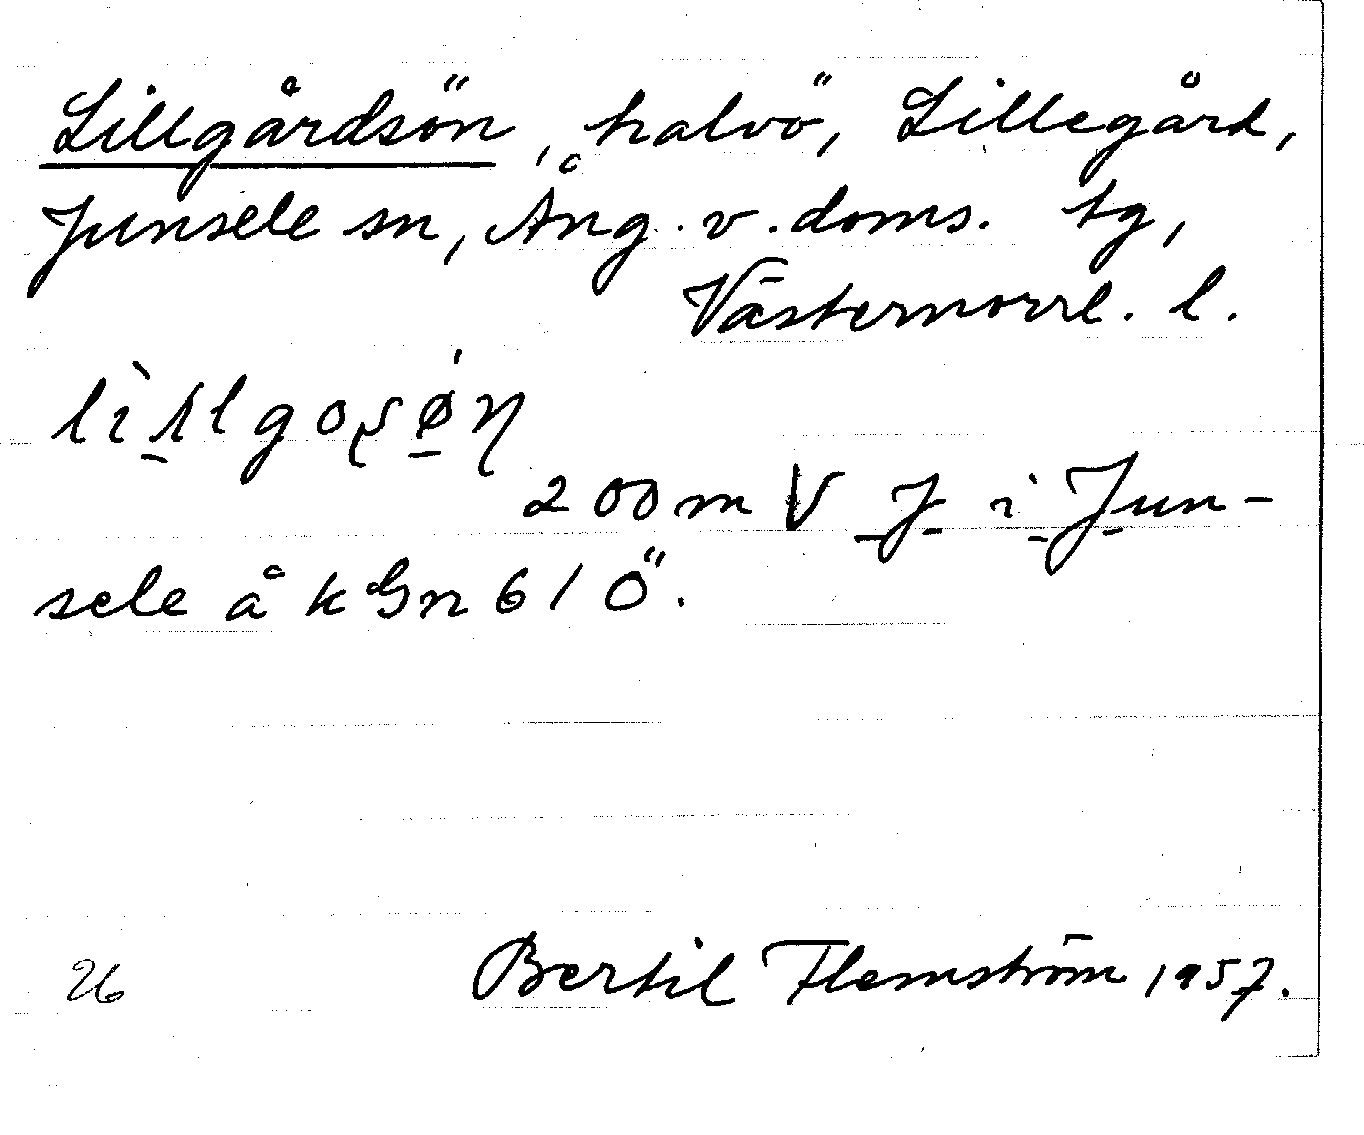 Lillgårdsön, halvö, Lillegård,
Junsele sn, Ång. v. doms. tg,
Västernorrl. l.
200 m V J i Jun-
sele å k Gn 61 Ö.
26 Bertil Flemström 1957.